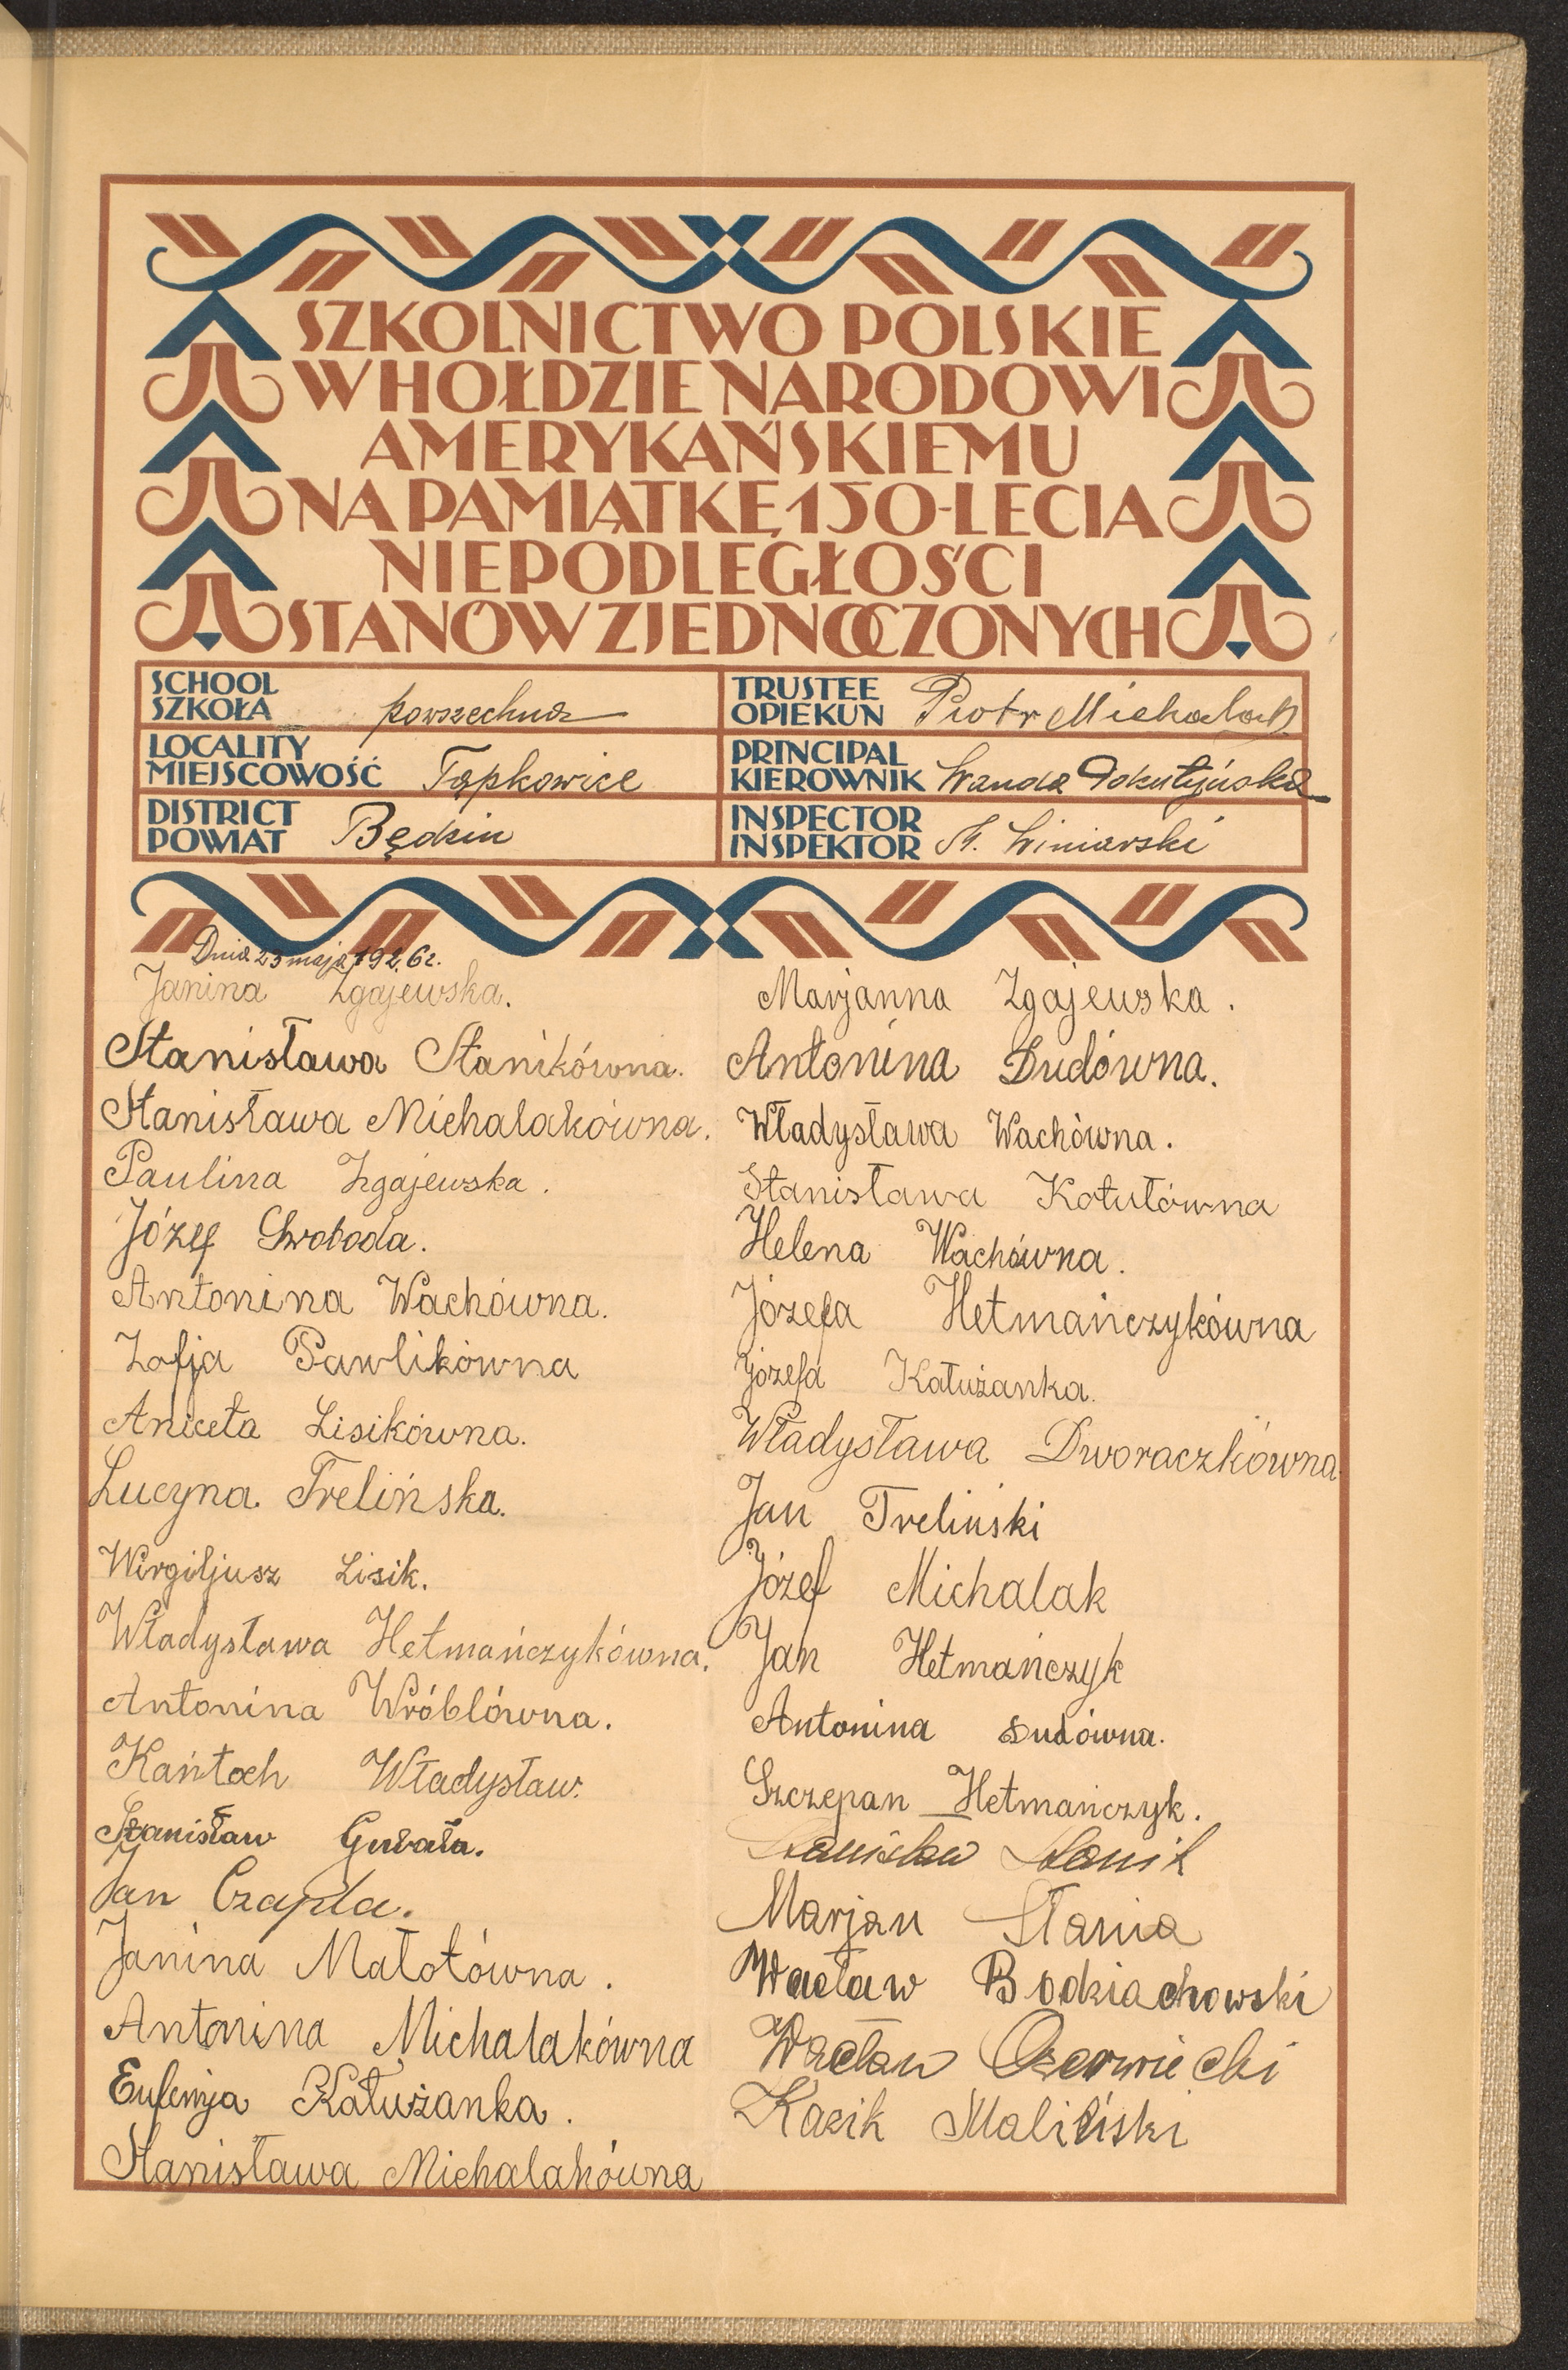 SZKOLNICTWO POLSKIE
W HOŁDZIE NARODOWI
AMERYKAŃSKIEMU
NA PAMIĄTKĘ 150-LECIA
NIEPODLEGŁOŚCI
STANÓW ZJEDNOCZONYCH
SCHOOL
SZKOŁA powszechna
TRUSTEE
OPIEKUN Piotr Michalak
LOCALITY
MIEJSCOWOŚĆ Tąpkowice
PRINCIPAL
KIEROWNIK Wanda
DISTRICT
POWIAT Będzin
INSPECTOR
INSPEKTOR St. Winiarski
Dnia 25 maja 1926 r.
Janina Zgajewska.
Stanisława Stanikówna.
Stanisława Michalakówna.
Paulina Zgajewska.
Józef Swoboda.
Antonina Wachówna.
Zofja Pawlikówna
Aniceta Lisikówna.
Lucyna Trelińska.
Wirgiljusz Lisik.
Władysława Hetmańczykówna.
Antonina Wróblówna.
Kańtoch Władysław.
Stanisław Gwała.
Jan Czapla.
Janina Małotówna.
Antonina Michalakówna
Eufemja Kałużanka.
Stanisława Michalakówna
Marjanna Zgajewska.
Antonina Dudówna.
Władysława Wachówna.
Stanisława Kotułówna
Helena Wachówna.
Józefa Hetmańczykówna
Józefa Kałużanka.
Władysława Dworaczkówna
Jan Treliński
Józef Michalak
Jan Hetmańczyk
Antonina Dudówna.
Szczepan Hetmańczyk.
Stanisław Stanik
Marjan Stania
Wacław Bodziachowski
Wacław Czerwiecki
Kazik Maliński